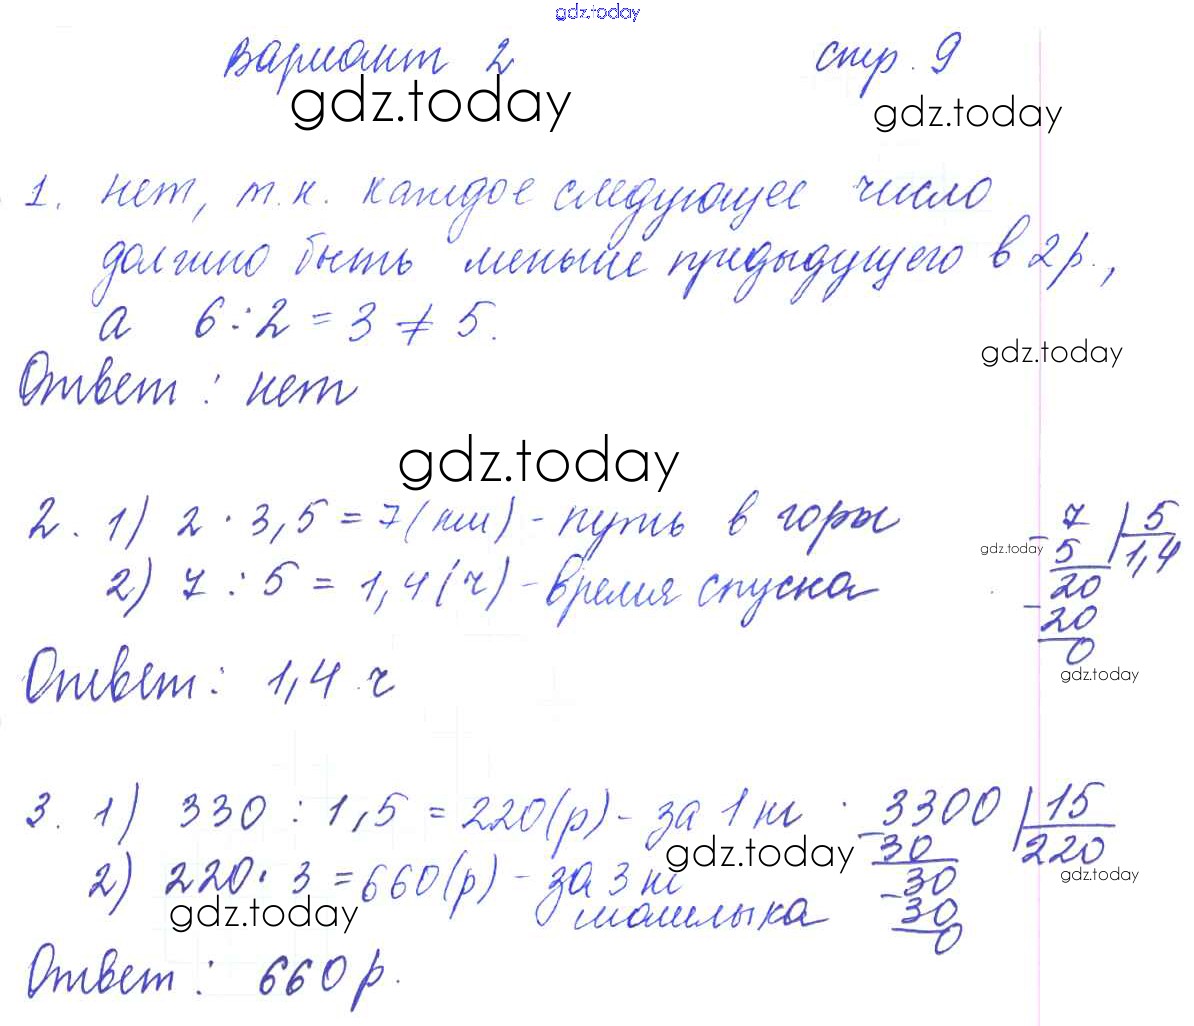 gdz.today
Вариант 2 стр. 9
gdz.today
gdz.today
1. нет, т.к. каждое следующее число
должно быть меньше предыдущего в 2 р.,
а 6 : 2 = 3 ≠ 5.
gdz.today
Ответ: нет
gdz.today
2. 1) 2 · 3,5 = 7 (км) - путь в горы
7 | 5
- 5 1,4
gdz.today
20
- 20
0
2) 7 : 5 = 1,4 (ч) - время спуска
Ответ: 1,4 ч
gdz.today
3. 1) 330 : 1,5 = 220 (р) - за 1 кг
3300 | 15
- 30 220
30
- 30
0
gdz.today
gdz.today
2) 220 · 3 = 660 (р) - за 3 кг
gdz.today
Ответ: 660 р.